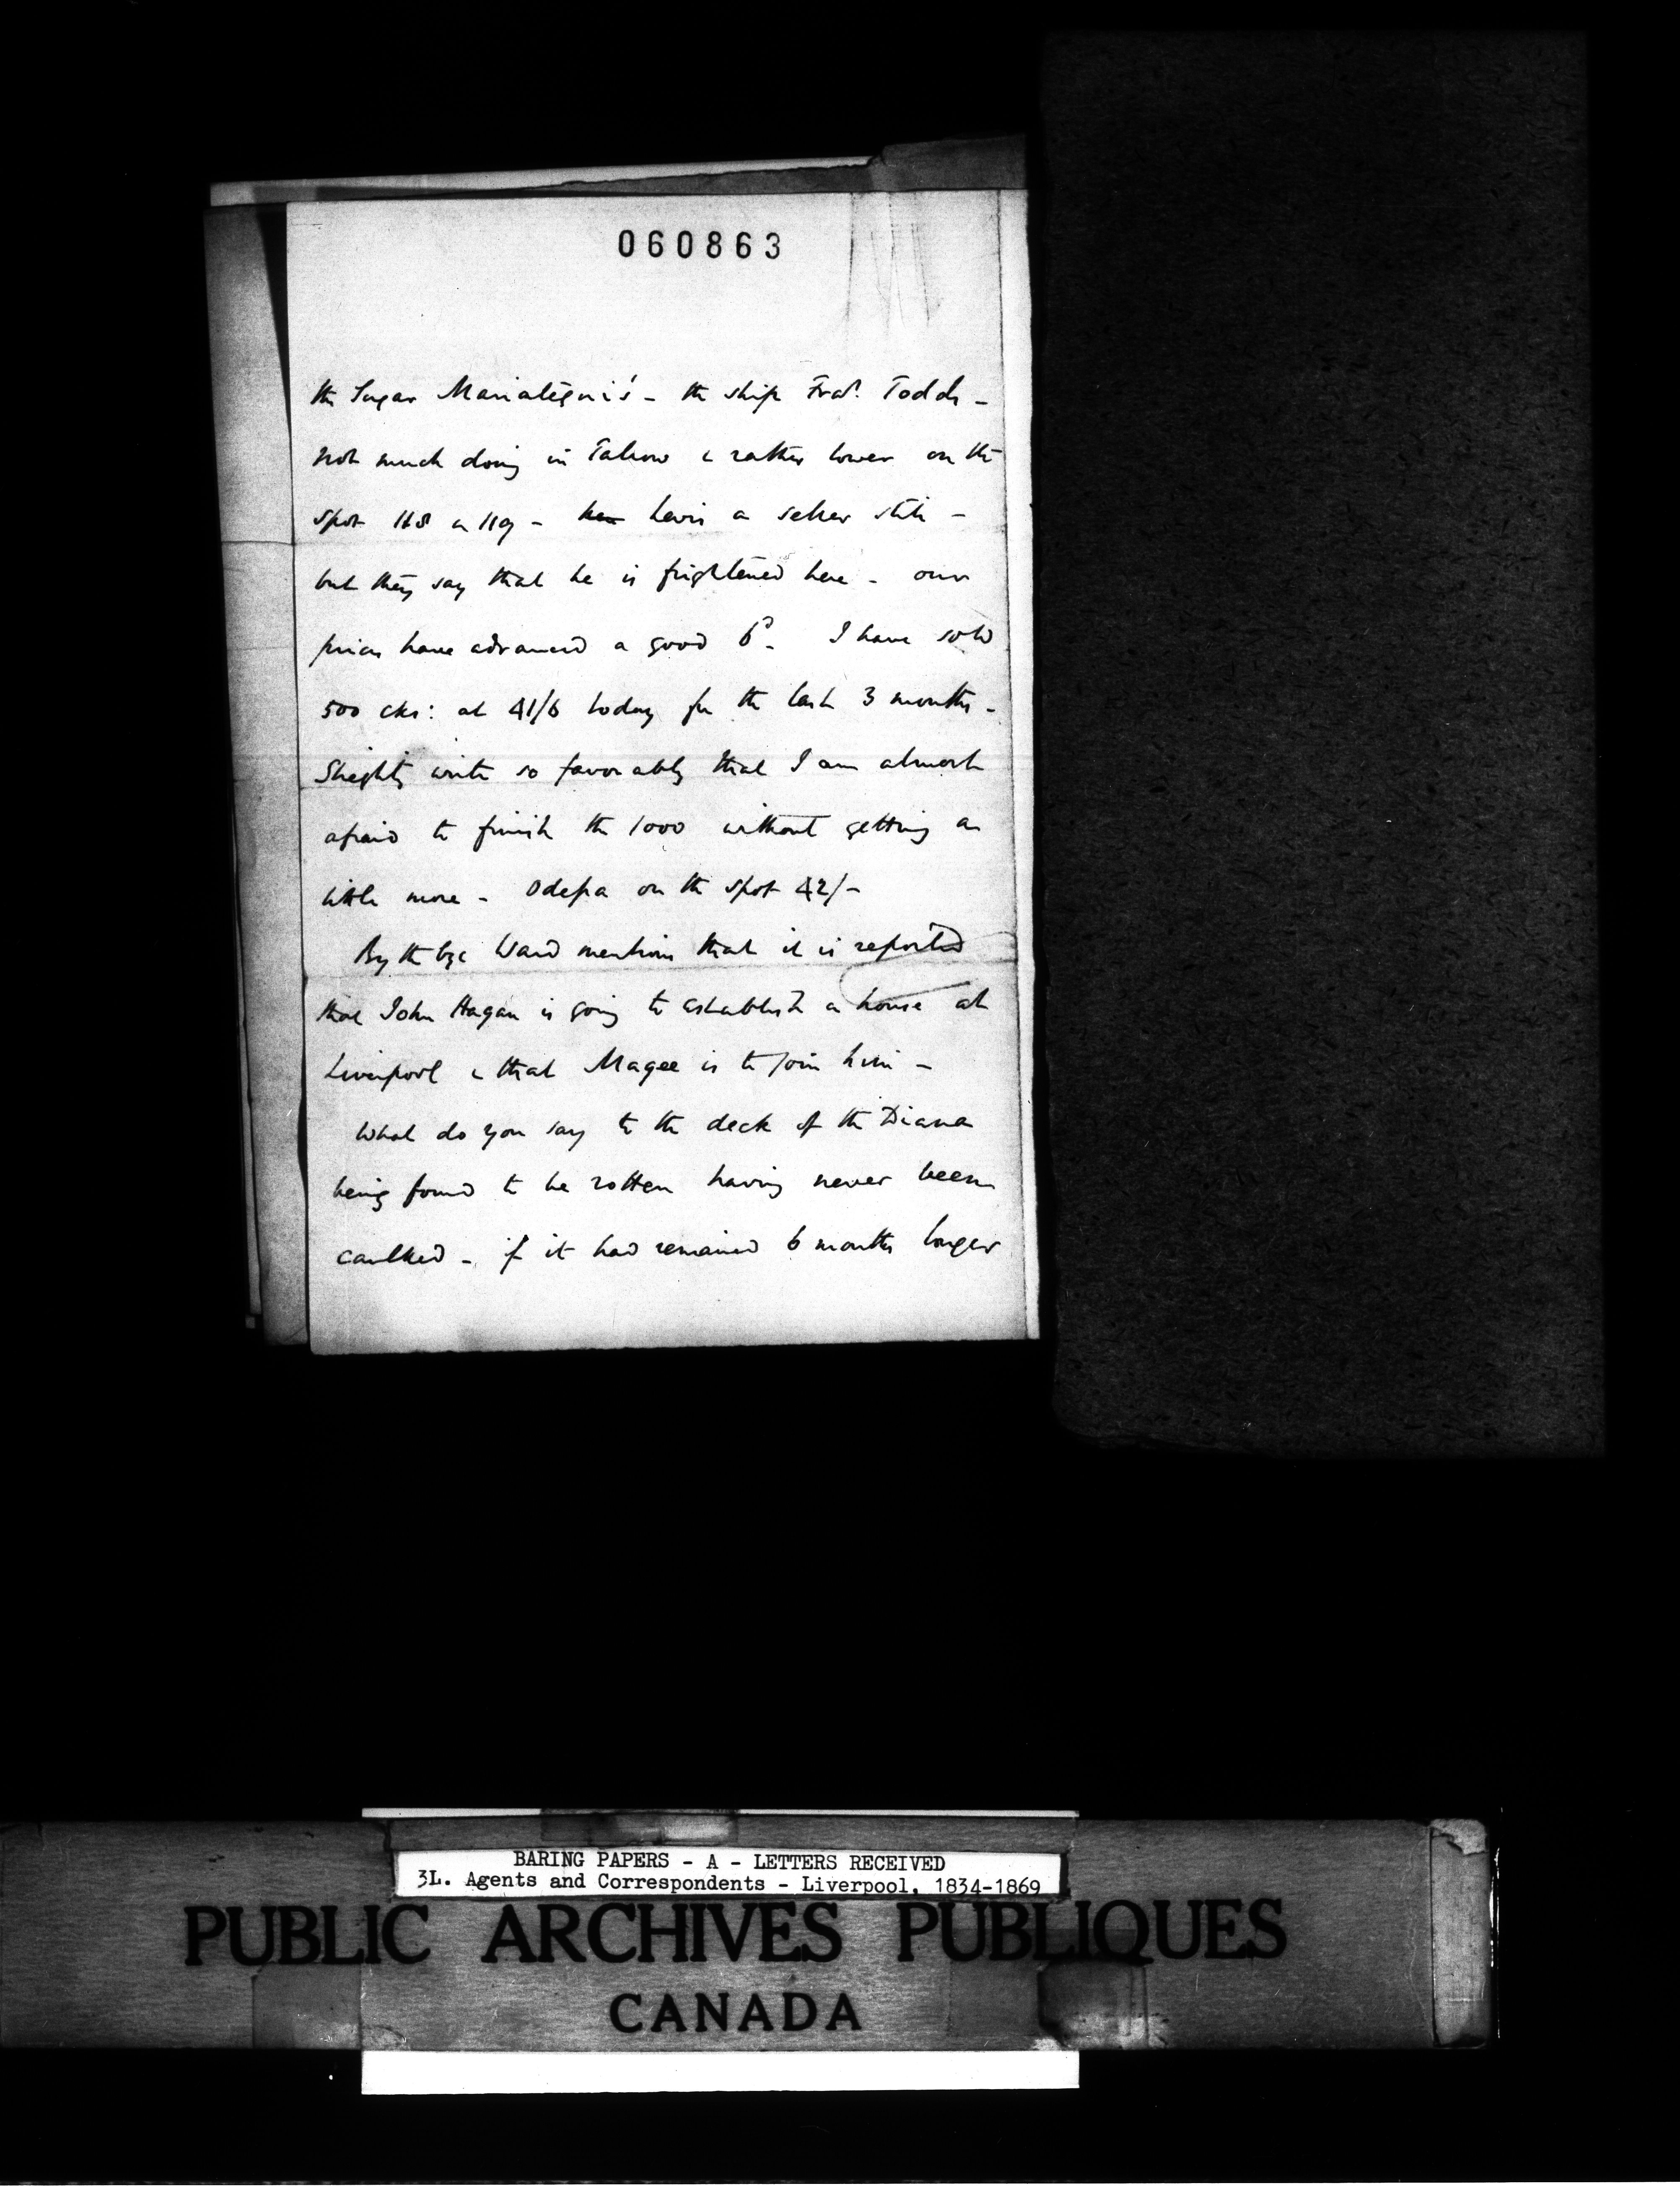 060863
the Sugar Mariategui's - the ship Fras. Todds -
not much doing in Tallow & rather lower on the
spot 118 a 119 - Levis a seller still -
but they say that he is frightened here - our
prices have advanced a good 6d. I have sold
500 cks: at 41/6 today for the last 3 months -
Sleghts write so favorably that I am almost
afraid to finish the 1000 without getting a
little more - Odessa on the spot 42/-
By the bye Ward mentions that it is reported
that John Hagan is going to establish a house at
Liverpool & that Magee is to join him -
What do you say to the deck of the Diana
being found to be rotten having never been
caulked - if it had remained 6 months longer
BARING PAPERS - A - LETTERS RECEIVED
3L. Agents and Correspondents - Liverpool, 1834-1869
PUBLIC ARCHIVES PUBLIQUES
CANADA